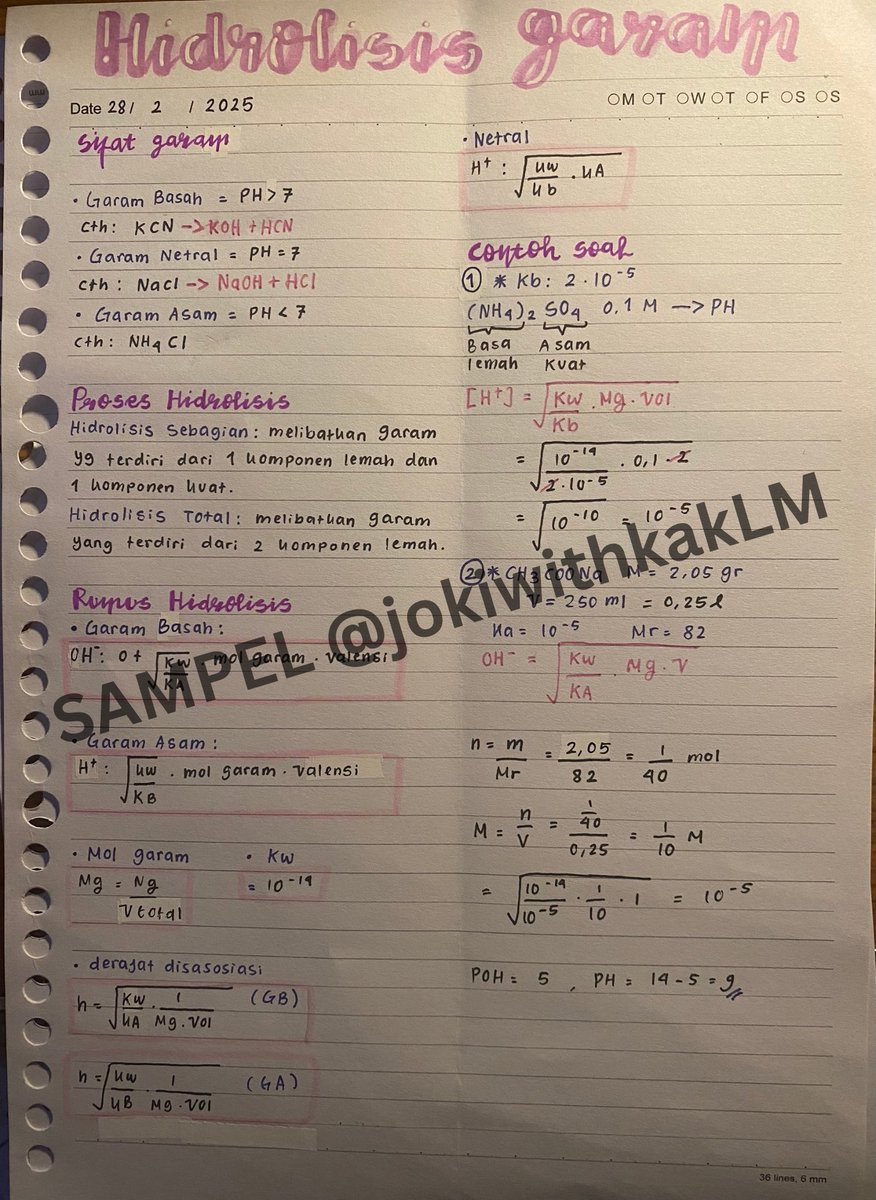 Hidrolisis garam
Date 28/ 2 / 2025
OM OT OW OT OF OS OS
Sifat garam
• Garam Basah = PH > 7
cth: KCN -> KOH + HCN
• Garam Netral = PH = 7
cth: NaCl -> NaOH + HCl
• Garam Asam = PH < 7
cth: NH4Cl
Proses Hidrolisis
Hidrolisis Sebagian: melibatkan garam
yg terdiri dari 1 komponen lemah dan
1 komponen kuat.
Hidrolisis Total: melibatkan garam
yang terdiri dari 2 komponen lemah.
Rumus Hidrolisis
• Garam Basah:
OH⁻: 0+ √(Kw/KA . mol garam . valensi)
• Garam Asam:
H⁺: √(Kw/KB . mol garam . valensi)
• Mol garam
Mg = Ng/Vtotal
• Kw
= 10⁻¹⁴
• derajat disasosiasi
h = √(Kw/KA . 1/Mg.Vol) (GB)
h = √(Kw/KB . 1/Mg.Vol) (GA)
• Netral
H⁺: √(Kw/Kb . KA)
Contoh soal
① * Kb: 2 . 10⁻⁵
(NH4)2 SO4 0,1 M -> PH
Basa Asam
lemah Kuat
[H⁺] = √(Kw/Kb . Mg . Vol)
= √(10⁻¹⁴/2.10⁻⁵ . 0,1 . 2)
= √(10⁻¹⁰) = 10⁻⁵
② * CH3COONa M = 2,05 gr
V = 250 ml = 0,25 l
Ka = 10⁻⁵ Mr = 82
OH⁻ = √(Kw/KA . Mg . V)
n = m/Mr = 2,05/82 = 1/40 mol
M = n/V = (1/40)/0,25 = 1/10 M
= √(10⁻¹⁴/10⁻⁵ . 1/10 . 1) = 10⁻⁵
POH = 5 , PH = 14 - 5 = 9//
SAMPEL @jokiwithkakLM
36 lines, 6 mm